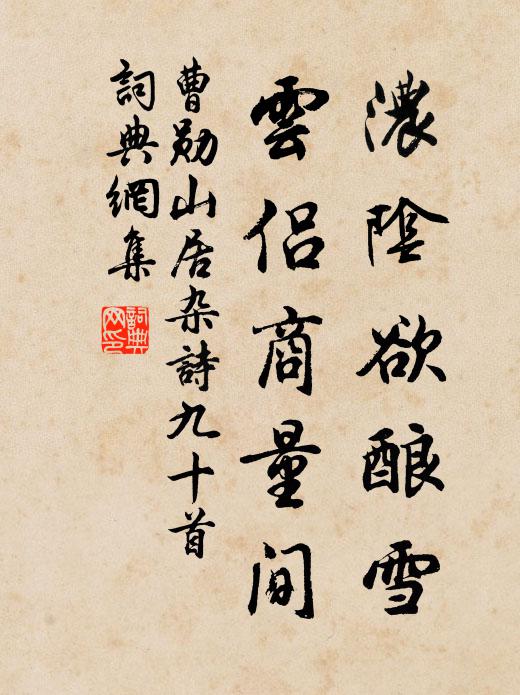 濃陰欲酿雪
雲侣商量間
曹勛山居杂詩九十首
詞典網集
詞典
网印